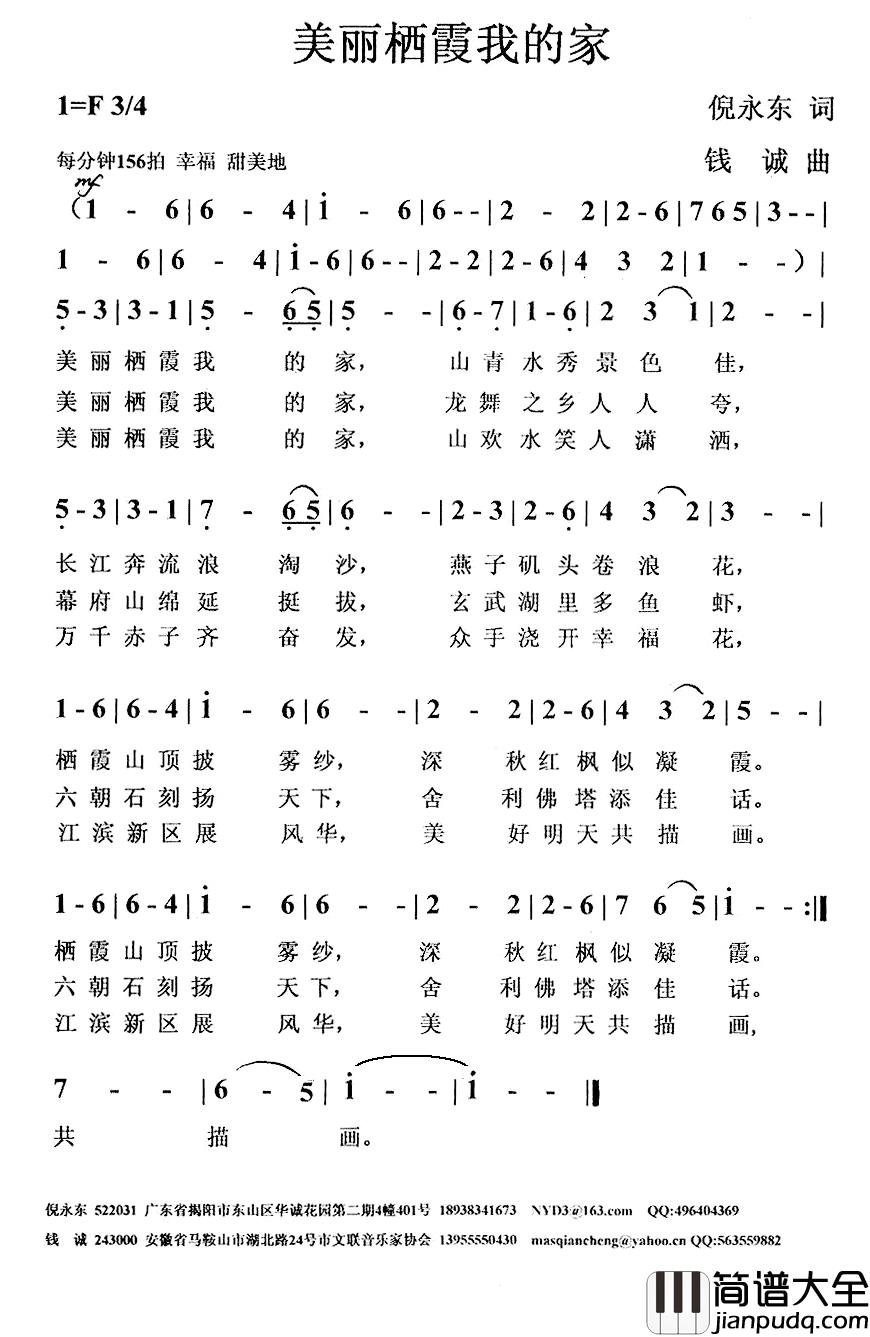 美丽栖霞我的家
1=F 3/4
倪永东 词
每分钟156拍 幸福 甜美地
钱 诚 曲
mf
(1 - 6|6 - 4|i - 6|6 - -|2 - 2|2 - 6|7 6 5|3 - -|
1 - 6|6 - 4|i - 6|6 - -|2 - 2|2 - 6|4 3 2|1 - -)|
5 - 3|3 - 1|5 - 6 5|5 - -|6 - 7|1 - 6|2 3 1|2 - -|
美丽栖霞我 的 家, 山青水秀景色 佳,
美丽栖霞我 的 家, 龙舞之乡人人 夸,
美丽栖霞我 的 家, 山欢水笑人潇 洒,
5 - 3|3 - 1|7 - 6 5|6 - -|2 - 3|2 - 6|4 3 2|3 - -|
长江奔流浪 淘 沙, 燕子矶头卷浪 花,
幕府山绵延 挺 拔, 玄武湖里多鱼 虾,
万千赤子齐 奋 发, 众手浇开幸福 花,
1 - 6|6 - 4|i - 6|6 - -|2 - 2|2 - 6|4 3 2|5 - -|
栖霞山顶披 雾纱, 深 秋红枫似凝 霞。
六朝石刻扬 天下, 舍 利佛塔添佳 话。
江滨新区展 风华, 美 好明天共描 画。
1 - 6|6 - 4|i - 6|6 - -|2 - 2|2 - 6|7 6 5|i - -:‖
栖霞山顶披 雾纱, 深 秋红枫似凝 霞。
六朝石刻扬 天下, 舍 利佛塔添佳 话。
江滨新区展 风华, 美 好明天共描 画,
7 - -|6 - 5|i - -|i - -‖
共 描 画。
倪永东 522031 广东省揭阳市东山区华诚花园第二期4幢401号 18938341673 NYD3@163.com QQ:496404369
钱 诚 243000 安徽省马鞍山市湖北路24号市文联音乐家协会 13955550430 masqiancheng@yahoo.cn QQ:563559882
简谱大全
jianpudq.com